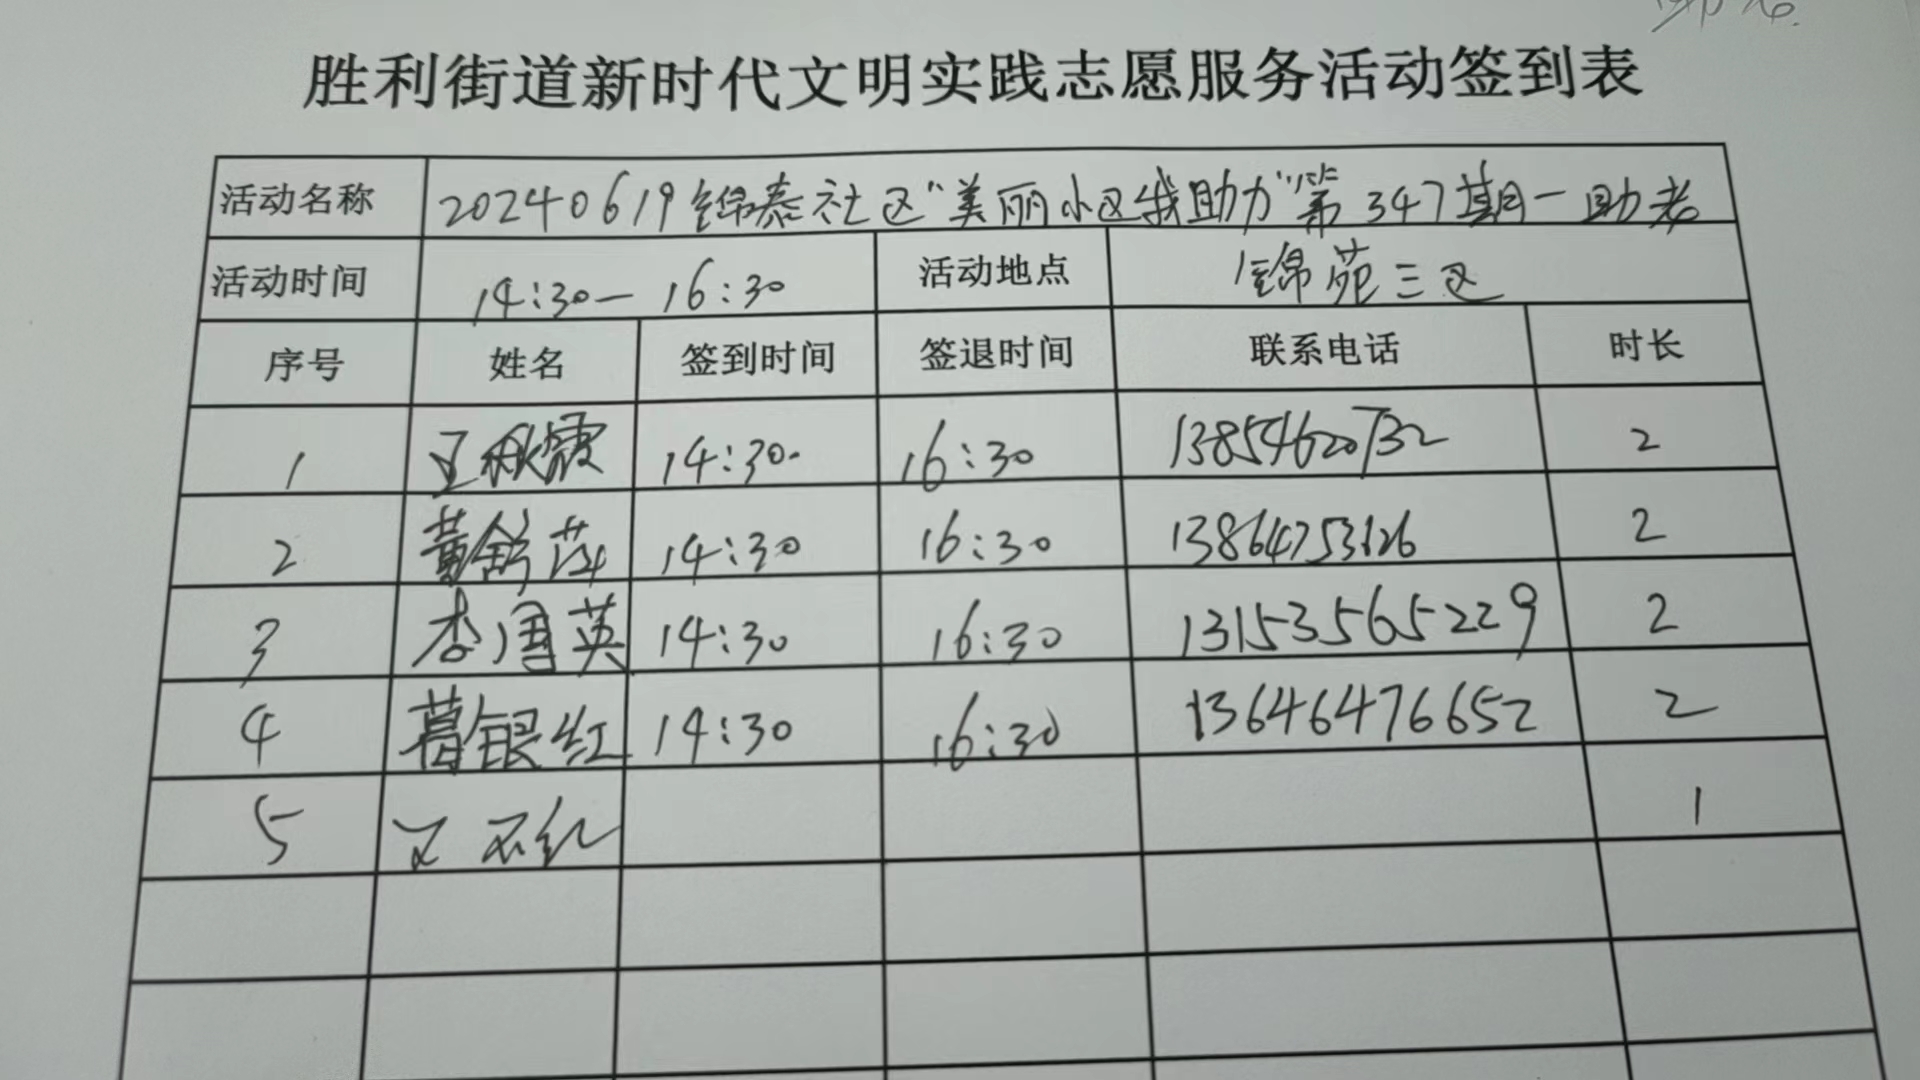 胜利街道新时代文明实践志愿服务活动签到表
活动名称 20240619锦泰社区"美丽小区我助力"第347期一助老
活动时间 14:30一16:30 活动地点 锦苑三区
序号 姓名 签到时间 签退时间 联系电话 时长
1 王秋霞 14:30 16:30 13854620732 2
2 黄舒萍 14:30 16:30 13864753126 2
3 李国英 14:30 16:30 13153565229 2
4 葛银红 14:30 16:30 13646476652 2
5 1